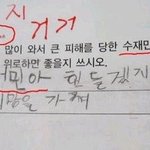 지 거거
많이 와서 큰 피해를 당한 수재민
위로하면 좋을지 쓰시오.
재민아 힘들겠지
망을 가져